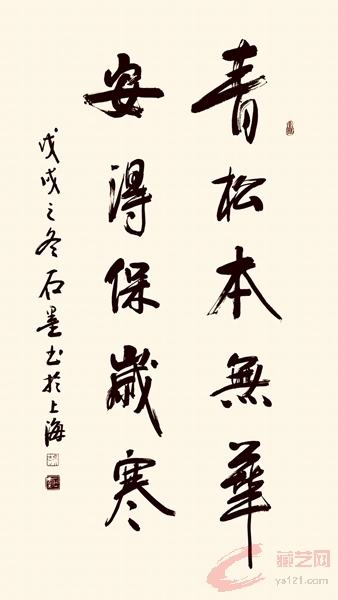 青松本無華
安得保歲寒
戊戌之冬石墨书於上海
藏艺网
ys121.com